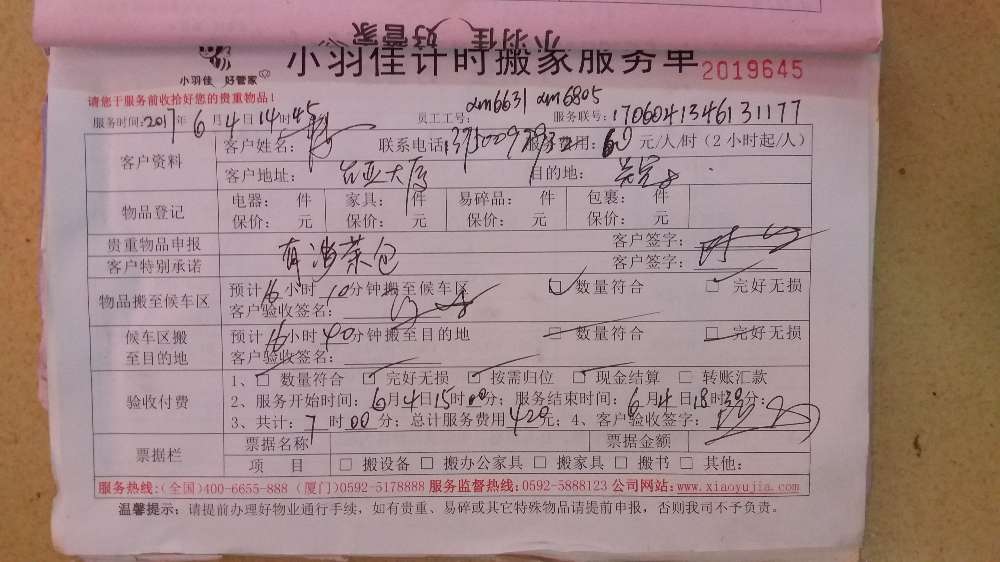 小羽佳 好管家
小羽佳计时搬家服务单 2019645
小羽佳 好管家
请您于服务前收拾好您的贵重物品！
服务时间:2017年6月4日14时45 员工工号: xm6631 xm6805 服务联号:1706041346131177
客户资料 客户姓名: 联系电话: 服务费用:60元/人/时（2小时起/人）
客户地址: 大厦 目的地:
物品登记 电器: 件 家具: 件 易碎品: 件 包裹: 件
保价: 元 保价: 元 保价: 元 保价: 元
贵重物品申报 客户签字:
客户特别承诺 有 茶包 客户签字:
物品搬至候车区 预计16小时10分钟搬至候车区 □数量符合 □完好无损
客户验收签名:
候车区搬至目的地 预计16小时40分钟搬至目的地 □数量符合 □完好无损
客户验收签名:
验收付费 1、□数量符合 □完好无损 □按需归位 □现金结算 □转账汇款
2、服务开始时间:6月4日15时00分；服务结束时间:6月4日18时30分；
3、共计:7时00分；总计服务费用420元；4、客户验收签字:
票据栏 票据名称 票据金额
项 目 □搬设备 □搬办公家具 □搬家具 □搬书 □其他:
服务热线:(全国)400-6655-888 (厦门)0592-5178888 服务监督热线:0592-5888123 公司网站:www.xiaoyujia.com
温馨提示：请提前办理好物业通行手续，如有贵重、易碎或其它特殊物品请提前申报，否则我司不予负责。